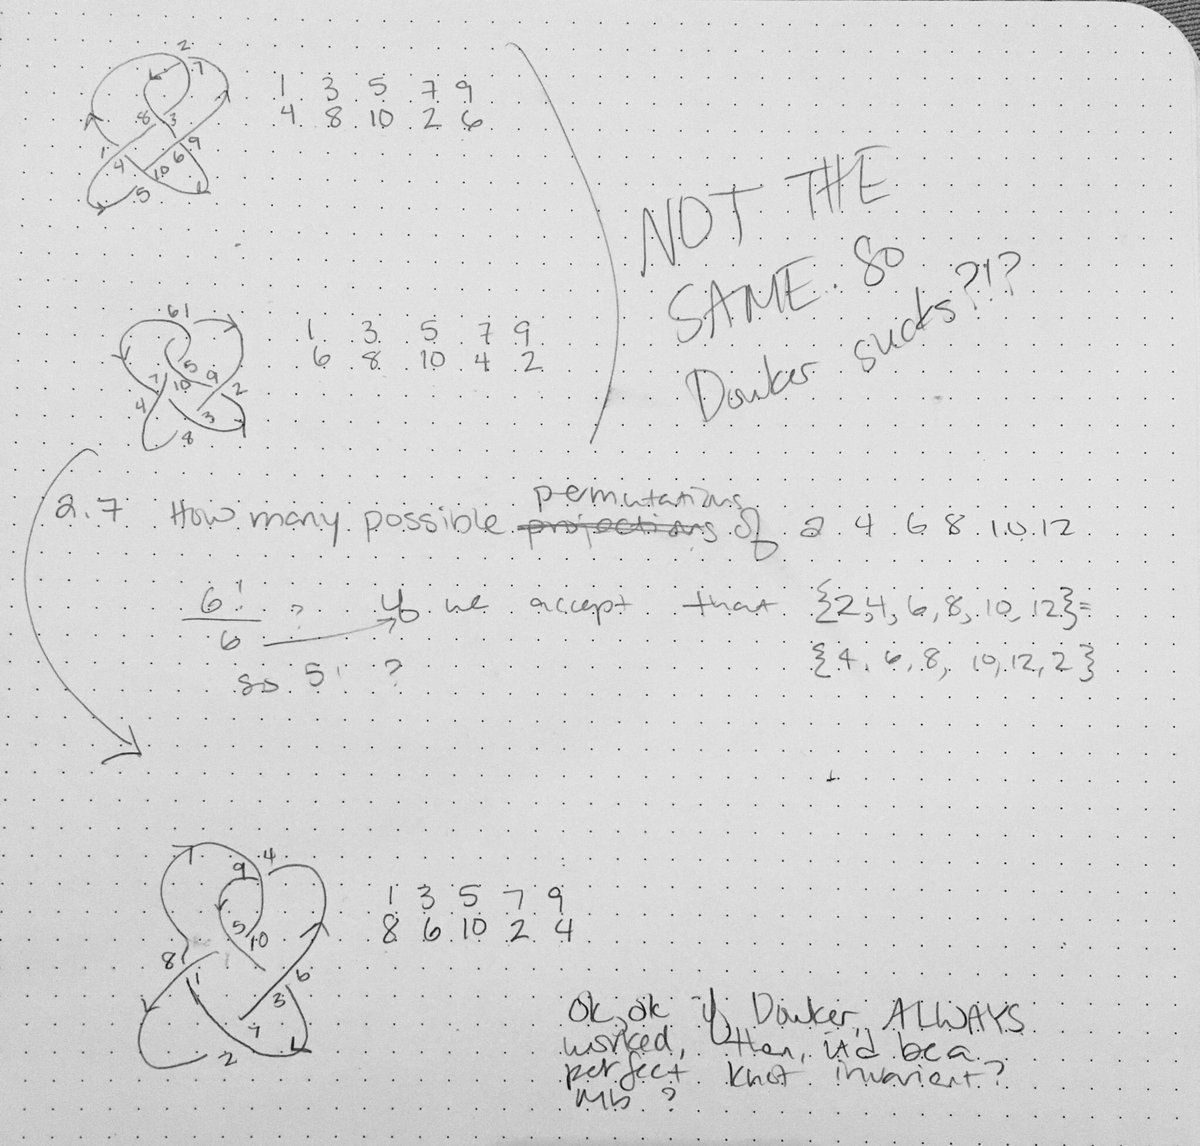 2
7
8 3
1 9
4 10 6
5
1 3 5 7 9
4 8 10 2 6
NOT THE
SAME SO
Dowker sucks?!?
6 1
5
7 10 9 2
4 3
8
1 3 5 7 9
6 8 10 4 2
2.7 How many possible permutations projections of 2 4 6 8 10 12
6!
6
? if we accept that {2,4, 6, 8, 10, 12}=
{4, 6, 8, 10, 12, 2}
so 5! ?
4
9
5 10
8 1 6
3
7
2
1 3 5 7 9
8 6 10 2 4
Ok, ok if Dowker ALWAYS
worked, then, it'd be a
perfect knot invarient?
mb ?